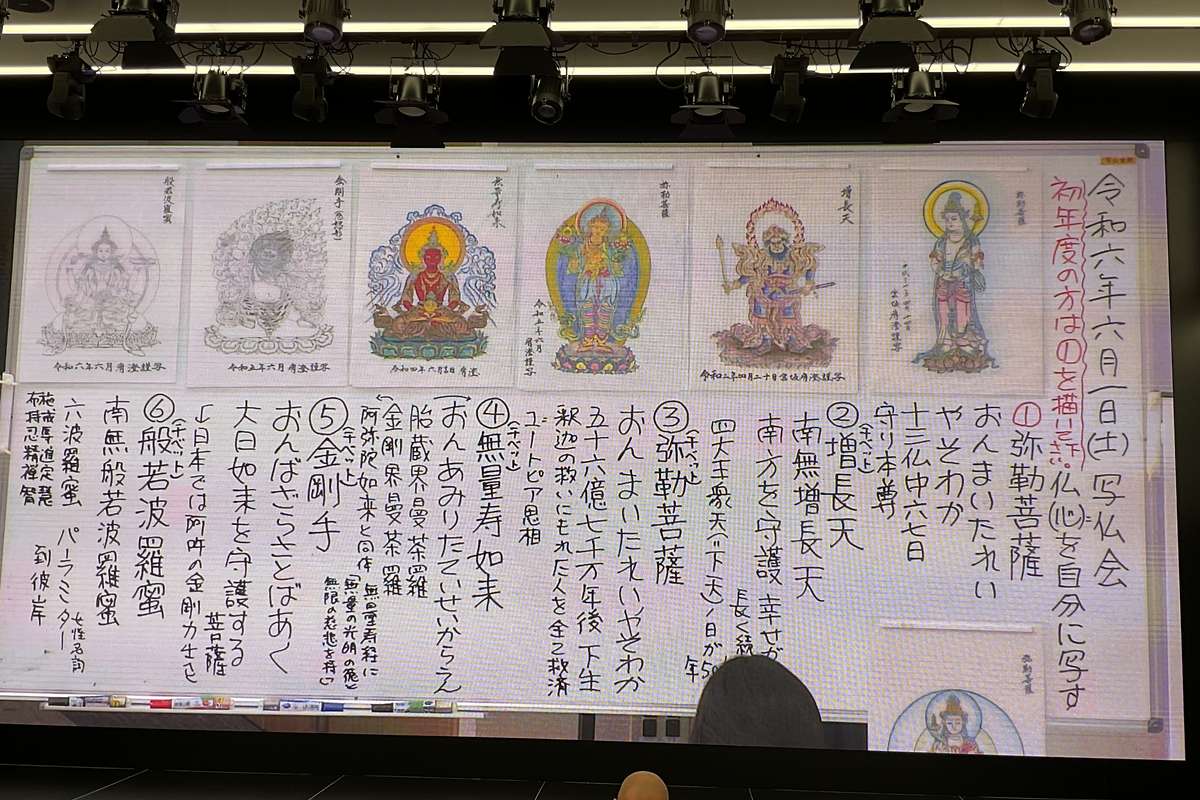 令和六年六月一日(土)写仏会
初年度の方は①を描いて下さい。
仏(心)を自分に写す
①弥勒菩薩
おんまいたれい
やそわか
十三仏中六七日
守り本尊
②増長天
南無増長天
南方を守護 幸せが
長く続
四大王衆天(下天)1日が50
年
③弥勒菩薩
(チベット)
おんまいたれいやそわか
五十六億七千万年後下生
釈迦の救いにもれた人を全て救済
ユートピア思想
④無量寿如来
(チベット)
おんあみりたていせいからうん
胎蔵界曼荼羅
金剛界曼荼羅
阿弥陀如来と同体
無量寿経に
「無量の光明の俺と
無限の慈悲を持し」
⑤金剛手
(チベット)
おんばざらさとばあく
大日如来を守護する
菩薩
↓日本では阿吽の金剛力士さと
⑥般若波羅蜜
(チベット)
南無般若波羅蜜
六波羅蜜 パーラミター
女性名詞
到彼岸
布施持戒忍辱精進禅定智慧
弥勒菩薩
増長天
令和二年四月二十日宮坂宥澄謹写
弥勒菩薩
令和五年六月
宥澄謹写
無量寿如来
令和四年六月吉日宥澄
金剛手(忿怒形)
令和五年六月宥澄謹写
般若波羅蜜
令和六年六月宥澄謹写
弥勒菩薩